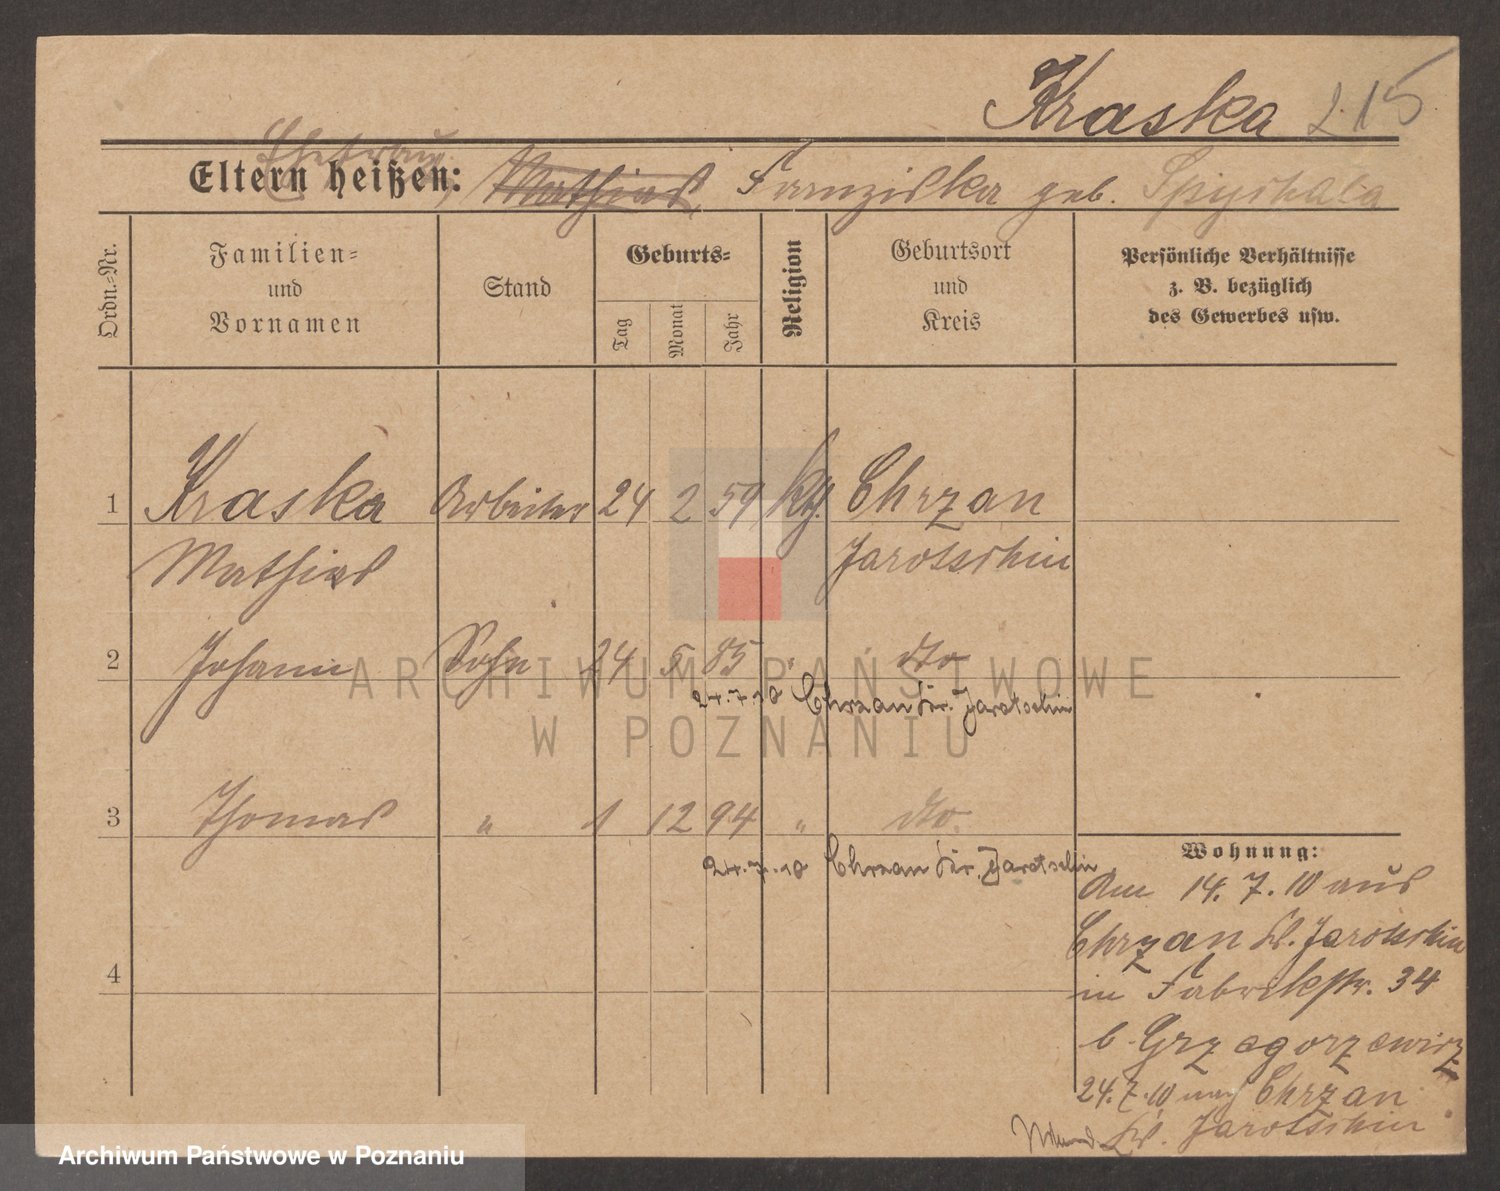 Kraska 215
Ehefrau
Eltern heißen: Mathias, Franziska geb. Spychala
Ordn.-Nr.
Familien-
und
Vornamen
Stand
Geburts-
Tag
Monat
Jahr
Religion
Geburtsort
und
Kreis
Persönliche Verhältnisse
z. B. bezüglich
des Gewerbes usw.
1 Kraska Arbeiter 24 2 59 kth. Chrzan
Mathias Jarotschin
2 Johann Sohn 24 5 85 " dto
24.7.10 Chrzan Kr. Jarotschin
3 Thomas " 1 12 94 " dto.
24.7.10 Chrzan Kr. Jarotschin
4
Wohnung:
Am 14.7.10 aus
Chrzan Kr. Jarotschin
in Fabrikstr. 34
b. Grzegorzewicz
24.7.10 nach Chrzan
Kr. Jarotschin
ARCHIWUM PAŃSTWOWE
W POZNANIU
Archiwum Państwowe w Poznaniu